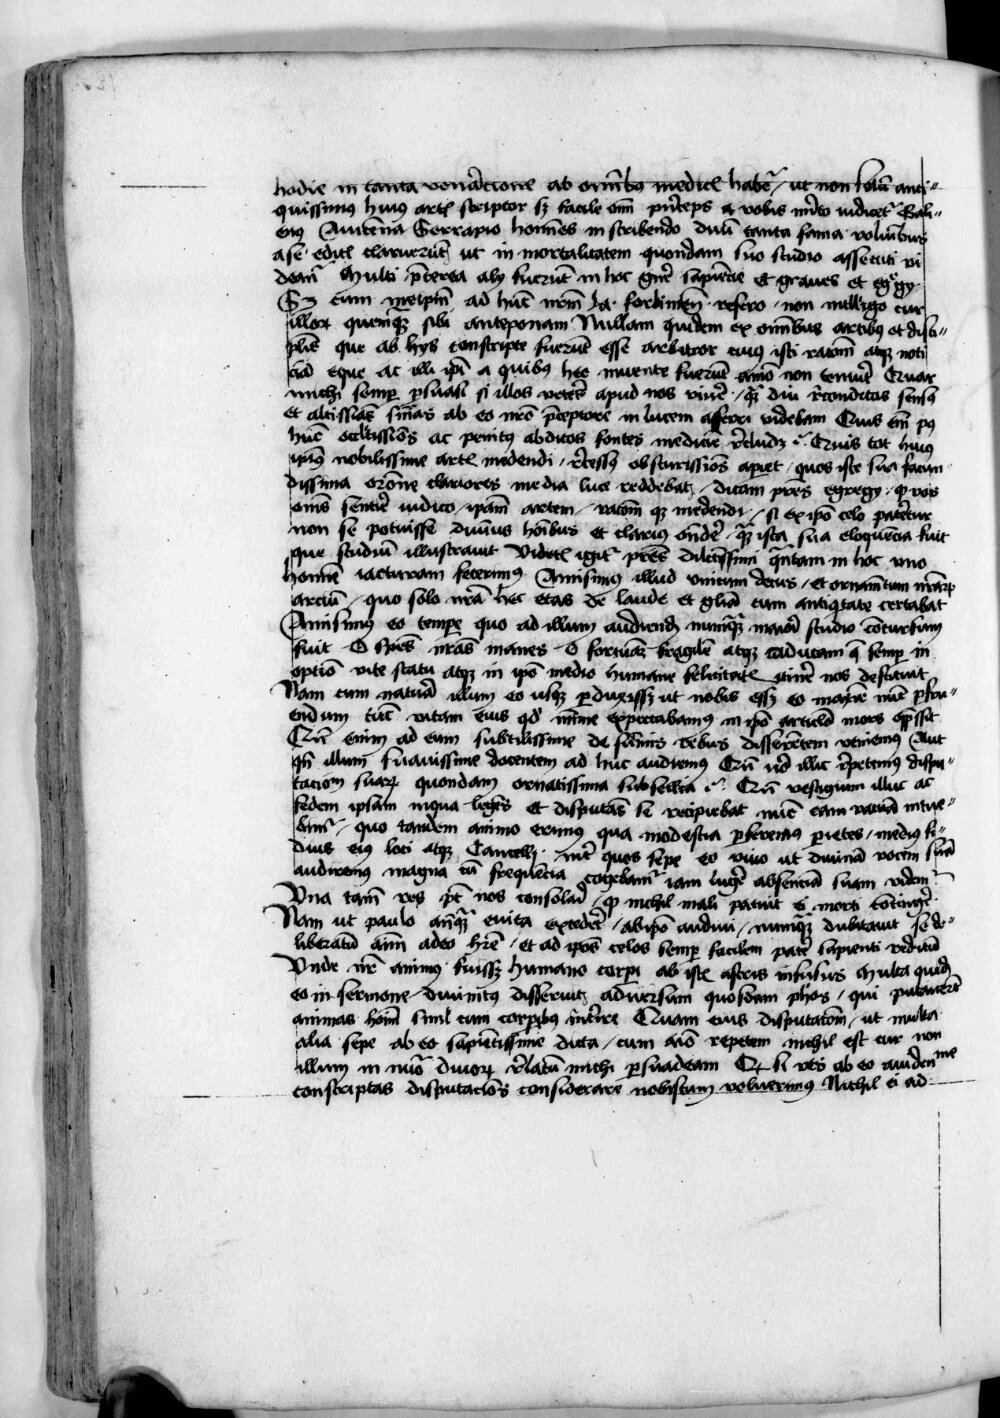 hodie in tanta veneracione ab omnibus medicis habetur / ut non solum anti-
quissimus huius artis scriptor sed facile omnium princeps a vobis merito iudicetur Gali-
enus Auicenna Serrapio homines in scribendo dulci tanta fama voluminibus
a se editis claruerunt ut in mortalitatem quondam suo studio assecuti vi
deantur Multi preterea alii fuerunt in hoc genere sapiencie et graues et egregii
Sed cum ad hunc nostrum Ja. forliuiensem refero non intelligo cur
illorum quemquam sibi anteponam Nullam quidem ex omnibus artibus et disci-
plinis que ab hiis conscripte fuerunt esse arbitror cuius isti rationem atque noti
ciam eque ac illi ipsi a quibus hee inuente fuerunt animo non tenuerit Quare
michi semper persuasi si illos veteres apud nos viuere / quam diu reconditos sensus
et altissimas sententias ab eo nostro preceptore in lucem afferri videbam Quis enim post
hunc occultissimos ac penitus abditos fontes medicine recludet ? Quis tot huius
ipsius nobilissime artis medendi / recessus obscurissimos aperiet / quos iste sua facun
dissima oratione clariores media luce reddebat / Dicam patres egregii / quod vos
omnes sentire iudico ipsam artem / rationem que medendi / si ex ipso celo pateretur
non se potuisse diuinius hominibus et clarius ostendere / quam ista sua eloquencia fuit
que studium illustrauit Videtis igitur patres dilectissimi quantam in hoc uno
homine iacturam fecerimus Amisimus illud unicum decus / et ornamentum nostrarum
arcium / quo solo nostra hec etas de laude et gloria cum antiquitate certabat
Amisimus eo tempore quo ad illum audiendum numquam maiori studio concursum
fuit O spes nostras inanes O fortunam fragilem atque caducam que semper in
optimo vite statu atque in ipso medio humane felicitatis itinere nos destituit
Nam cum natura illum eo usque perduxisset ut nobis esset eo maxime nunc perfru-
endum tunc vitam eius quod minime expectabamus in ipso articulo mors oppressit
Cum enim ad eum subtilissime de summis rebus disserentem veniemus Aut
quando illum suauissime docentem ad huc audiemus Cum vero illic repetemus dispu-
tacionum suarum quondam ornatissima subsellia ? Cum vestigium illuc ac
sedem ipsam in qua legens et disputans se recipiebat nunc eam vacuam intue-
bimur / quo tandem animo erimus qua modestia perferemus parietes / medius fi-
dius eius loci atque Cancelli . inter quos sepe eo viuo ut diuinam vocem suam
audiremus magna cum frequencia cogebamur iam lugere absenciam suam videntur
Una tamen res potest nos consolari / quod nichil mali patitur ei morti contingere
Nam ut paulo antequam e vita excederet / ab ipso audiui / numquam dubitauit se de-
liberatum animum adeo habere / et ad ipsos celos semper facilem patere sapienti reditum
Unde noster animus fuisset humano corpori ab istis astris infusus Multa quidem
eo in sermone diuinitus disseruit aduersum quosdam philosophos / qui putauerunt
animas hominum simul cum corporibus interire Quam eius disputationem / ut multa
alia sepe ab eo sapientissime dicta / cum animo repetam nichil est cur non
illum in numero diuorum relatum michi persuadeam Et si res ab eo audien me
conscriptas disputaciones considerare nobiscum voluerimus Nichil ei ad